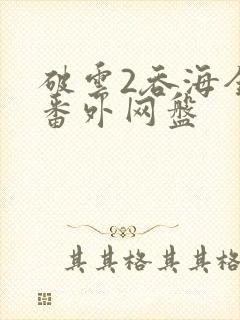 破雲2吞海全
番外网盘
其其格其其格